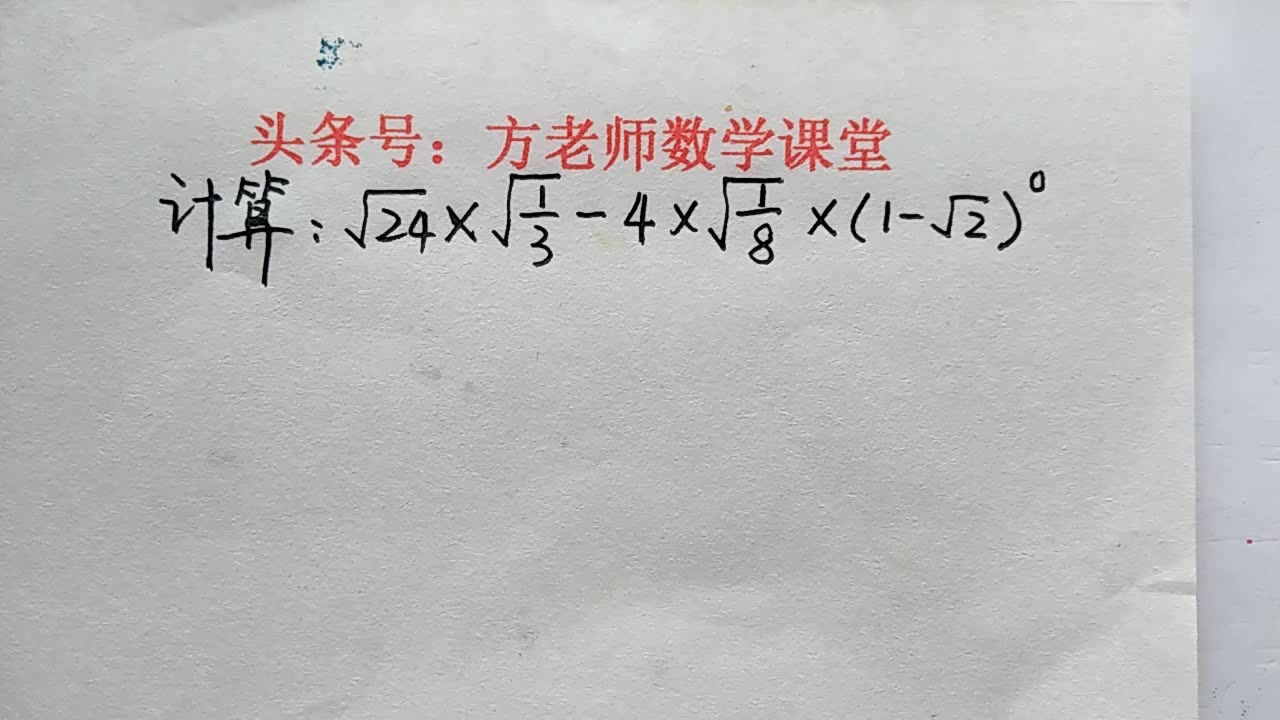 头条号：方老师数学课堂
计算：√24×√(1/3)-4×√(1/8)×(1-√2)⁰